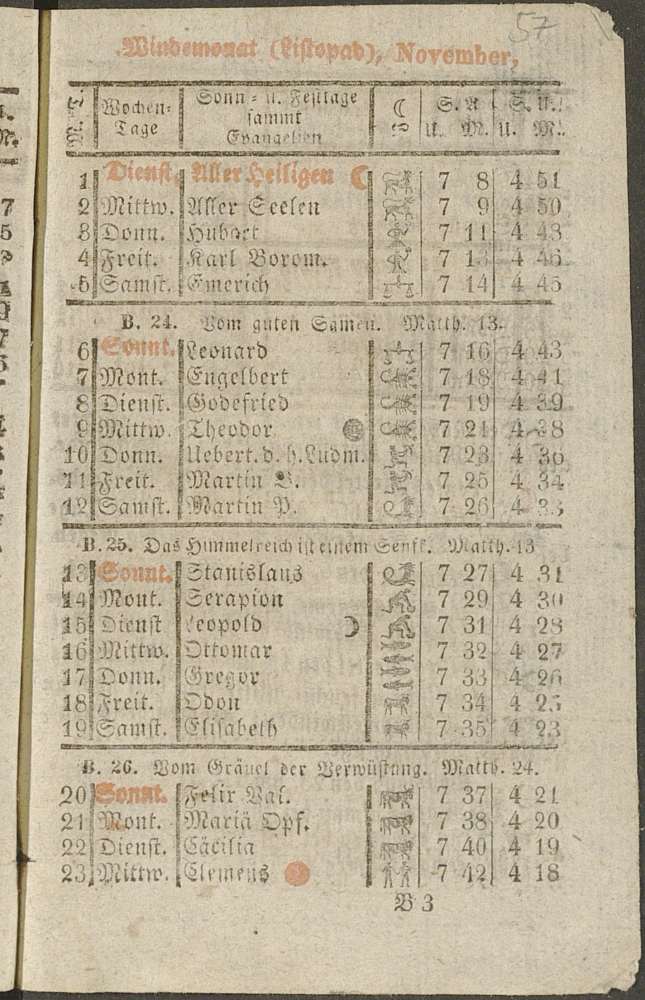 57
Windemonat (Listopad), November,
M. T. Wochen- Tage Sonn- u. Festtage sammt Evangelien S. A. U. M. S. U. U. M.
1 Dienst. Aller Heiligen 7 8 4 51
2 Mittw. Aller Seelen 7 9 4 50
3 Donn. Hubert 7 11 4 48
4 Freit. Karl Borom. 7 13 4 46
5 Samst. Emerich 7 14 4 45
B. 24. Vom guten Samen. Matth. 13.
6 Sonnt. Leonard 7 16 4 43
7 Mont. Engelbert 7 18 4 41
8 Dienst. Godefried 7 19 4 39
9 Mittw. Theodor 7 21 4 38
10 Donn. Uebert. d. h. Ludm. 7 23 4 36
11 Freit. Martin B. 7 25 4 34
12 Samst. Martin P. 7 26 4 33
B. 25. Das Himmelreich ist einem Senfk. Matth. 13
13 Sonnt. Stanislaus 7 27 4 31
14 Mont. Serapion 7 29 4 30
15 Dienst Leopold 7 31 4 28
16 Mittw. Ottomar 7 32 4 27
17 Donn. Gregor 7 33 4 26
18 Freit. Odon 7 34 4 25
19 Samst. Elisabeth 7 35 4 23
B. 26. Vom Gräuel der Verwüstung. Matth. 24.
20 Sonnt. Felix Val. 7 37 4 21
21 Mont. Mariä Opf. 7 38 4 20
22 Dienst. Cäcilia 7 40 4 19
23 Mittw. Clemens 7 42 4 18
B 3